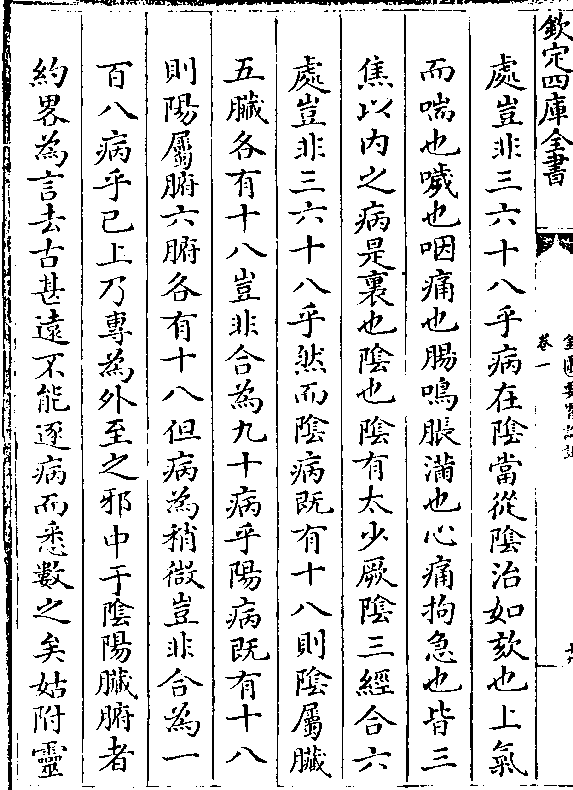 欽定四庫全書
卷一
處豈非三六十八乎病在陰當從陰治如欬也上氣
而喘也噦也咽痛也腸鳴脹滿也心痛拘急也皆三
焦以内之病是裏也陰也陰有太少厥陰三經合六
處豈非三六十八乎然而陰病既有十八則陰屬臟
五臟各有十八豈非合為九十病乎陽病既有十八
則陽屬腑六腑各有十八但病為稍微豈非合為一
百八病乎已上乃專為外至之邪中于陰陽臟腑者
約畧為言去古甚遠不能逐病而悉數之矣姑附靈